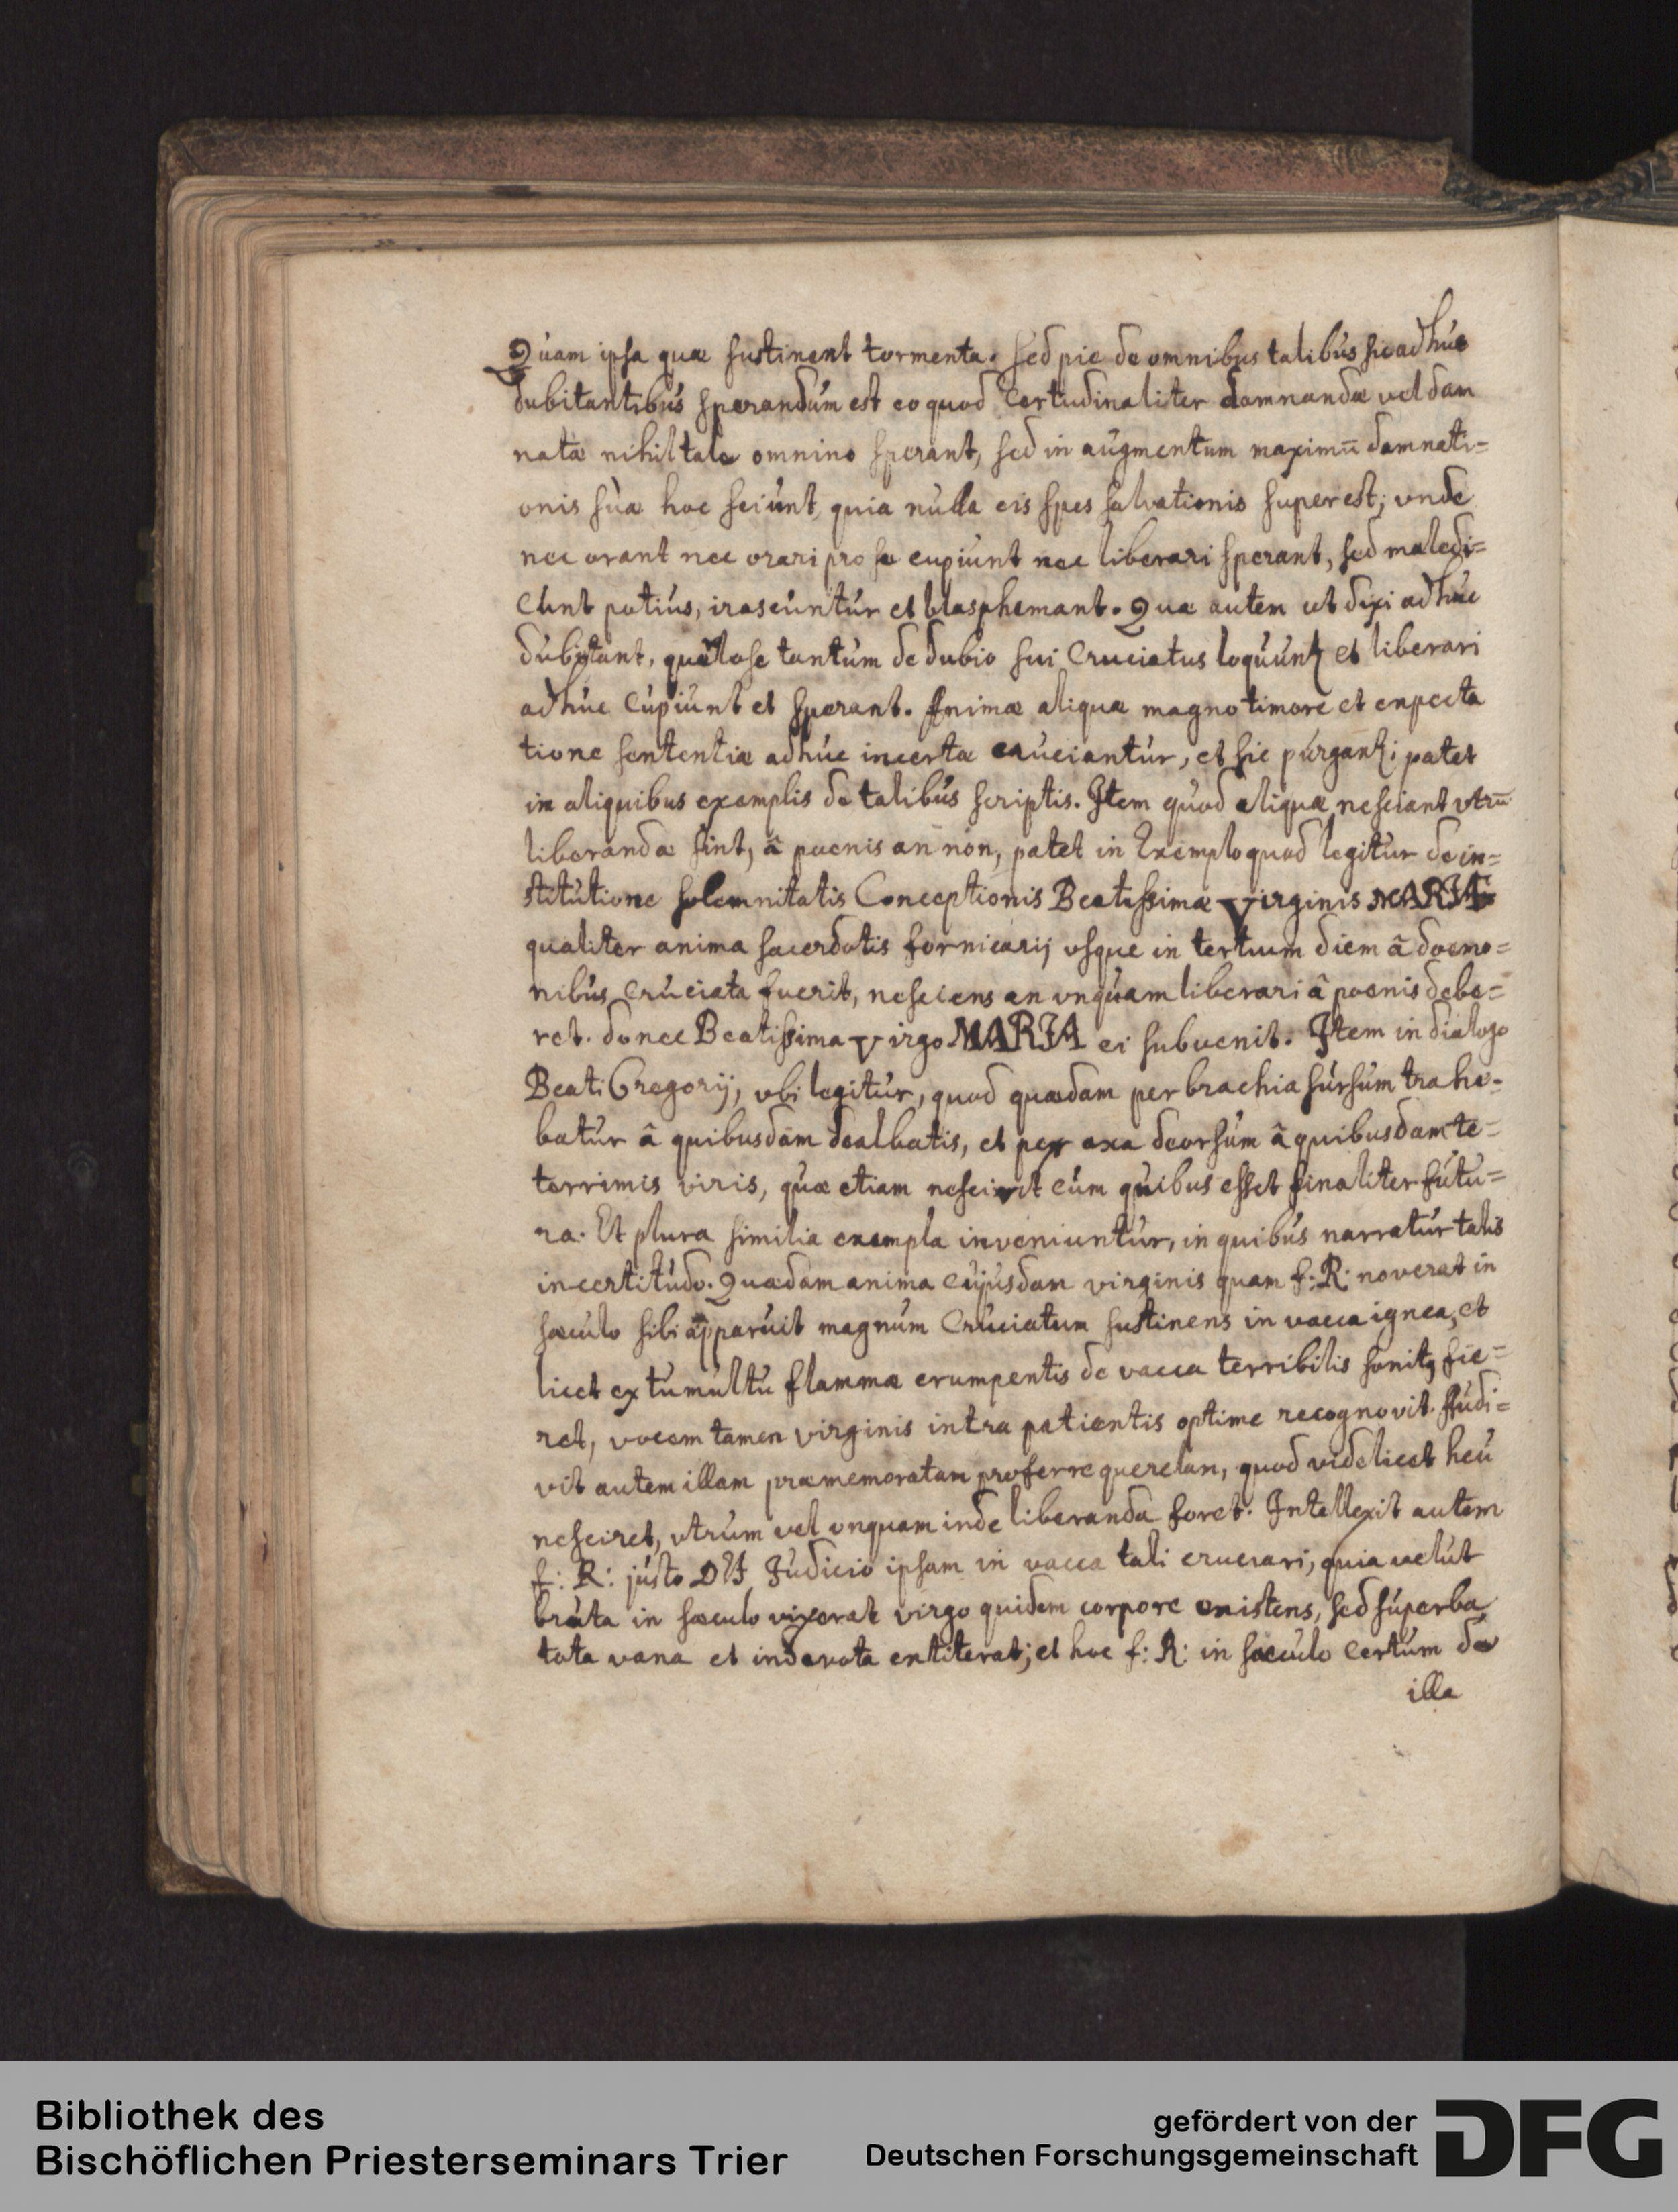 Quam ipsa quæ sustinent tormenta. sed pie de omnibus talibus sic adhuc
dubitantibus sperandum est eo quod certudinaliter damnandæ vel dam
natæ nihil tale omnino sperant, sed in augmentum maximū damnati=
onis suæ hoc sciunt, quia nulla eis spes salvationis superest; vnde
nec orant nec orari pro se cupiunt nec liberari sperant, sed maledi=
cunt potius, irascuntur et blasphemant. Quæ autem ut dixi adhuc
dubitant, quælose tantum de dubio sui cruciatus loquunt et liberari
adhuc cupiunt et sperant. Animæ aliquæ magno timore et expecta
tione sententiæ adhuc incertæ cruciantur, et sic purgantur patet
in aliquibus exemplis de talibus scriptis. Item quod aliquæ nesciant vtrū
liberandæ sint, â poenis an non, patet in Exemplo quod legitur de in=
stitutione solemnitatis Conceptionis Beatissimæ Virginis MARIÆ
qualiter anima sacerdotis fornicarij vsque in tertium diem â doemo=
nibus cruciata fuerit, nesciens an vnquam liberari â poenis debe=
ret. donec Beatissima Virgo MARIA ei subvenit. Item in dialogo
Beati Gregorij, vbi legitur, quod quædam per brachia sursum trahe=
batur â quibusdam dealbatis, et per cxa deorsum â quibusdam te=
terrimis viris, quæ etiam nescivit cum quibus esset finaliter futu=
ra. Et plura similia exempla inveniuntur, in quibus narratur talis
incertitudo. Quædam anima cujusdam virginis quam f: R: noverat in
sæculo sibi apparuit magnum cruciatum sustinens in vacca ignea, et
licet ex tumultu flammæ erumpentis de vacca terribilis sonitus fie=
ret, vocem tamen virginis intra patientis optime recognovit. Audi=
vit autem illam præmemoratam proferre querelam, quod videlicet heu
nesciret, vtrum vel vnquam inde liberanda foret. Intellexit autem
f: R: justo DEI Judicio ipsam in vacca tali cruciari, quia velut
bruta in sæculo vixerat virgo quidem corpore existens, sed superba,
tota vana et indevota extiterat; et hoc f: R: in sæculo certum de
illa
Bibliothek des
Bischöflichen Priesterseminars Trier
gefördert von der
Deutschen Forschungsgemeinschaft
DFG